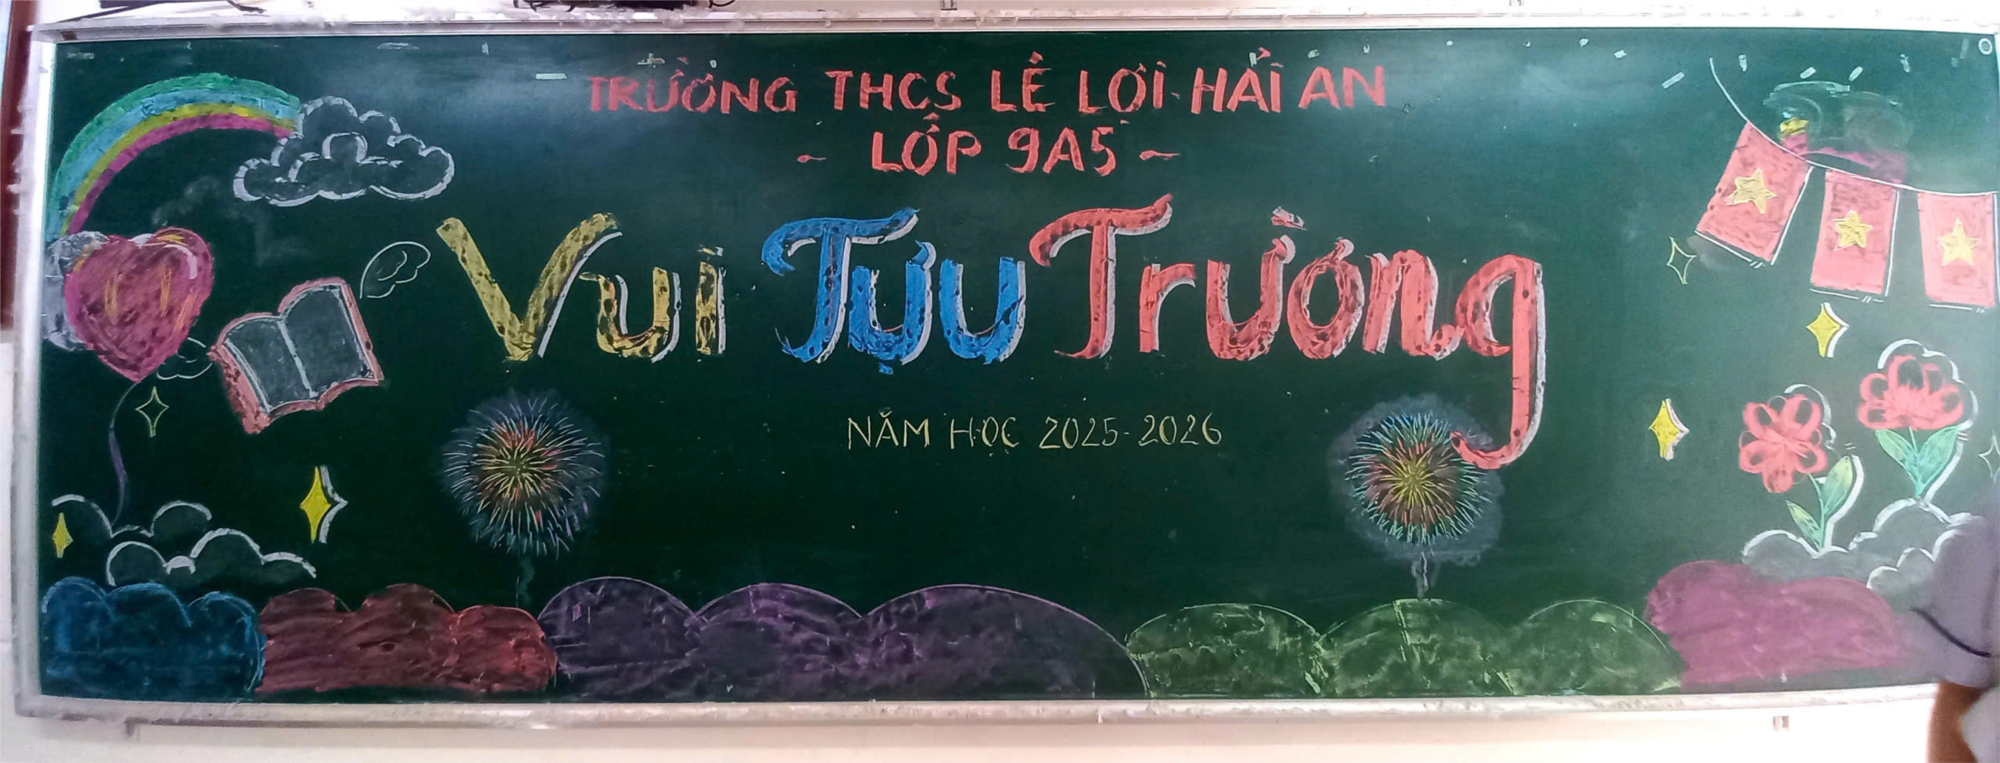 TRƯỜNG THCS LÊ LỢI HẢI AN
- LỚP 9A5 -
Vui Tựu Trường
NĂM HỌC 2025-2026